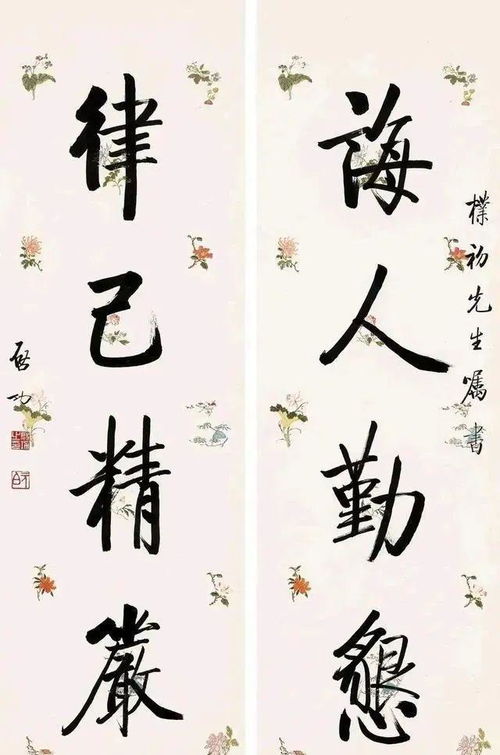 樸初先生嘱書
誨人勤懇
律己精嚴
啓功